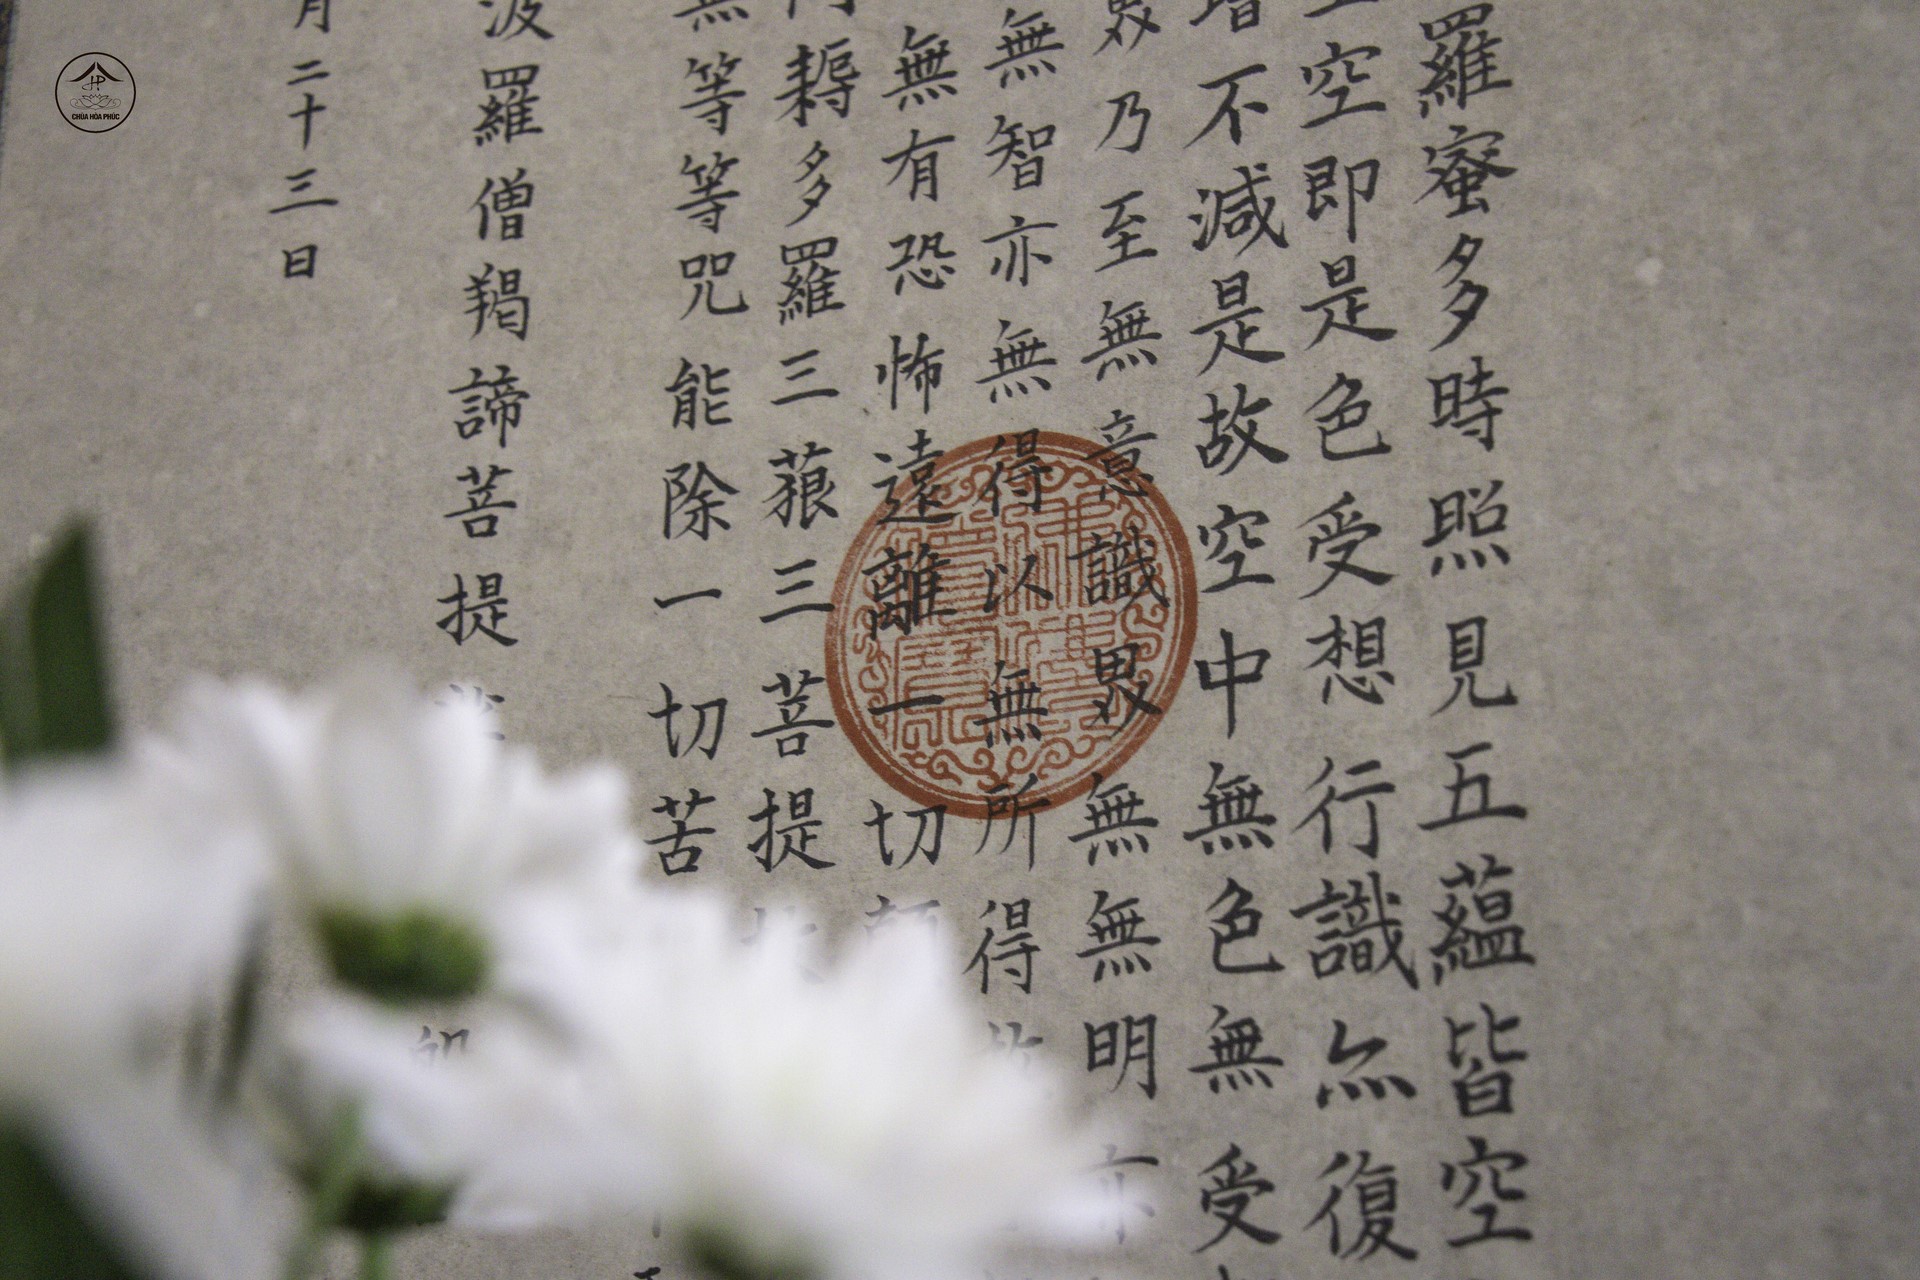 羅蜜多時照見五蘊皆空
空即是色受想行識亦復
增不減是故空中無色無受
界乃至無意識界無無明亦
無智亦無得以無所得故
無有恐怖遠離一切顛
耨多羅三藐三菩提
無等等咒能除一切苦
波羅僧羯諦菩提
月二十三日
CHÙA HÒA PHÚC